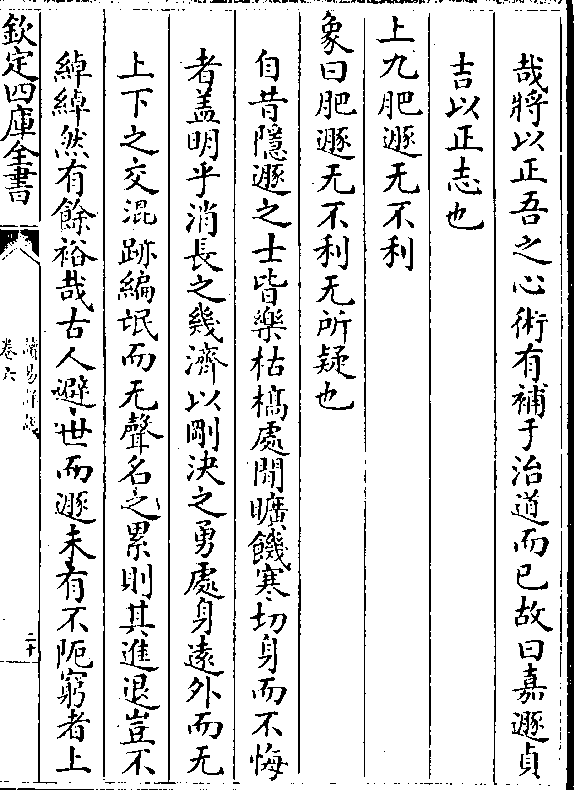 哉將以正吾之心術有補于治道而已故曰嘉遯貞
吉以正志也
上九肥遯无不利
象曰肥遯无不利无所疑也
自昔隱遯之士皆樂枯槁處閒曠饑寒切身而不悔
者盖明乎消長之幾濟以剛決之勇處身遠外而无
上下之交混跡編氓而无聲名之累則其進退豈不
綽綽然有餘裕哉古人避世而遯未有不阨窮者上
欽定四庫全書
讀易詳説
卷六
二十